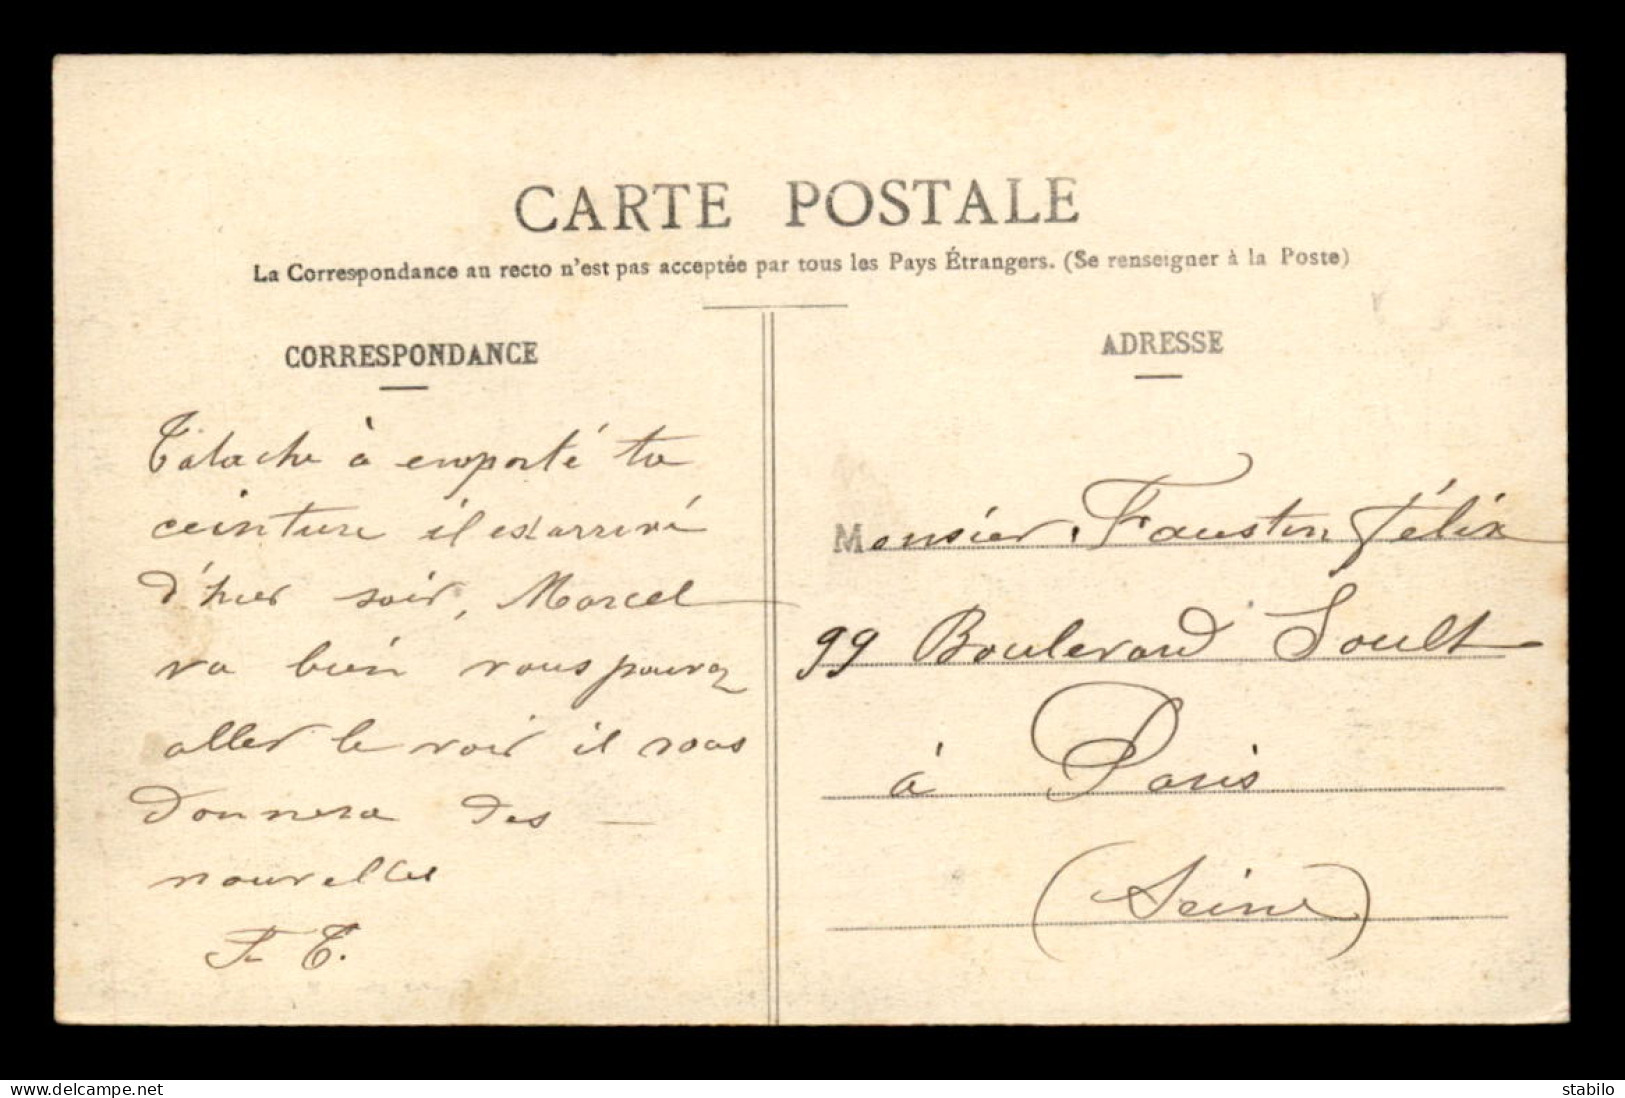 CARTE POSTALE
La Correspondance au recto n'est pas acceptée par tous les Pays Étrangers. (Se renseigner à la Poste)
CORRESPONDANCE
à emporté ta
ceinture il est arrivé
d'hier soir, Marcel
va bien vous pouvez
aller le voir il vous
donnera des
nouvelles
F. T.
ADRESSE
Monsieur Faustin Félix
99 Boulevard Soult
à Paris
(Seine)
www.delcampe.net
stabilo